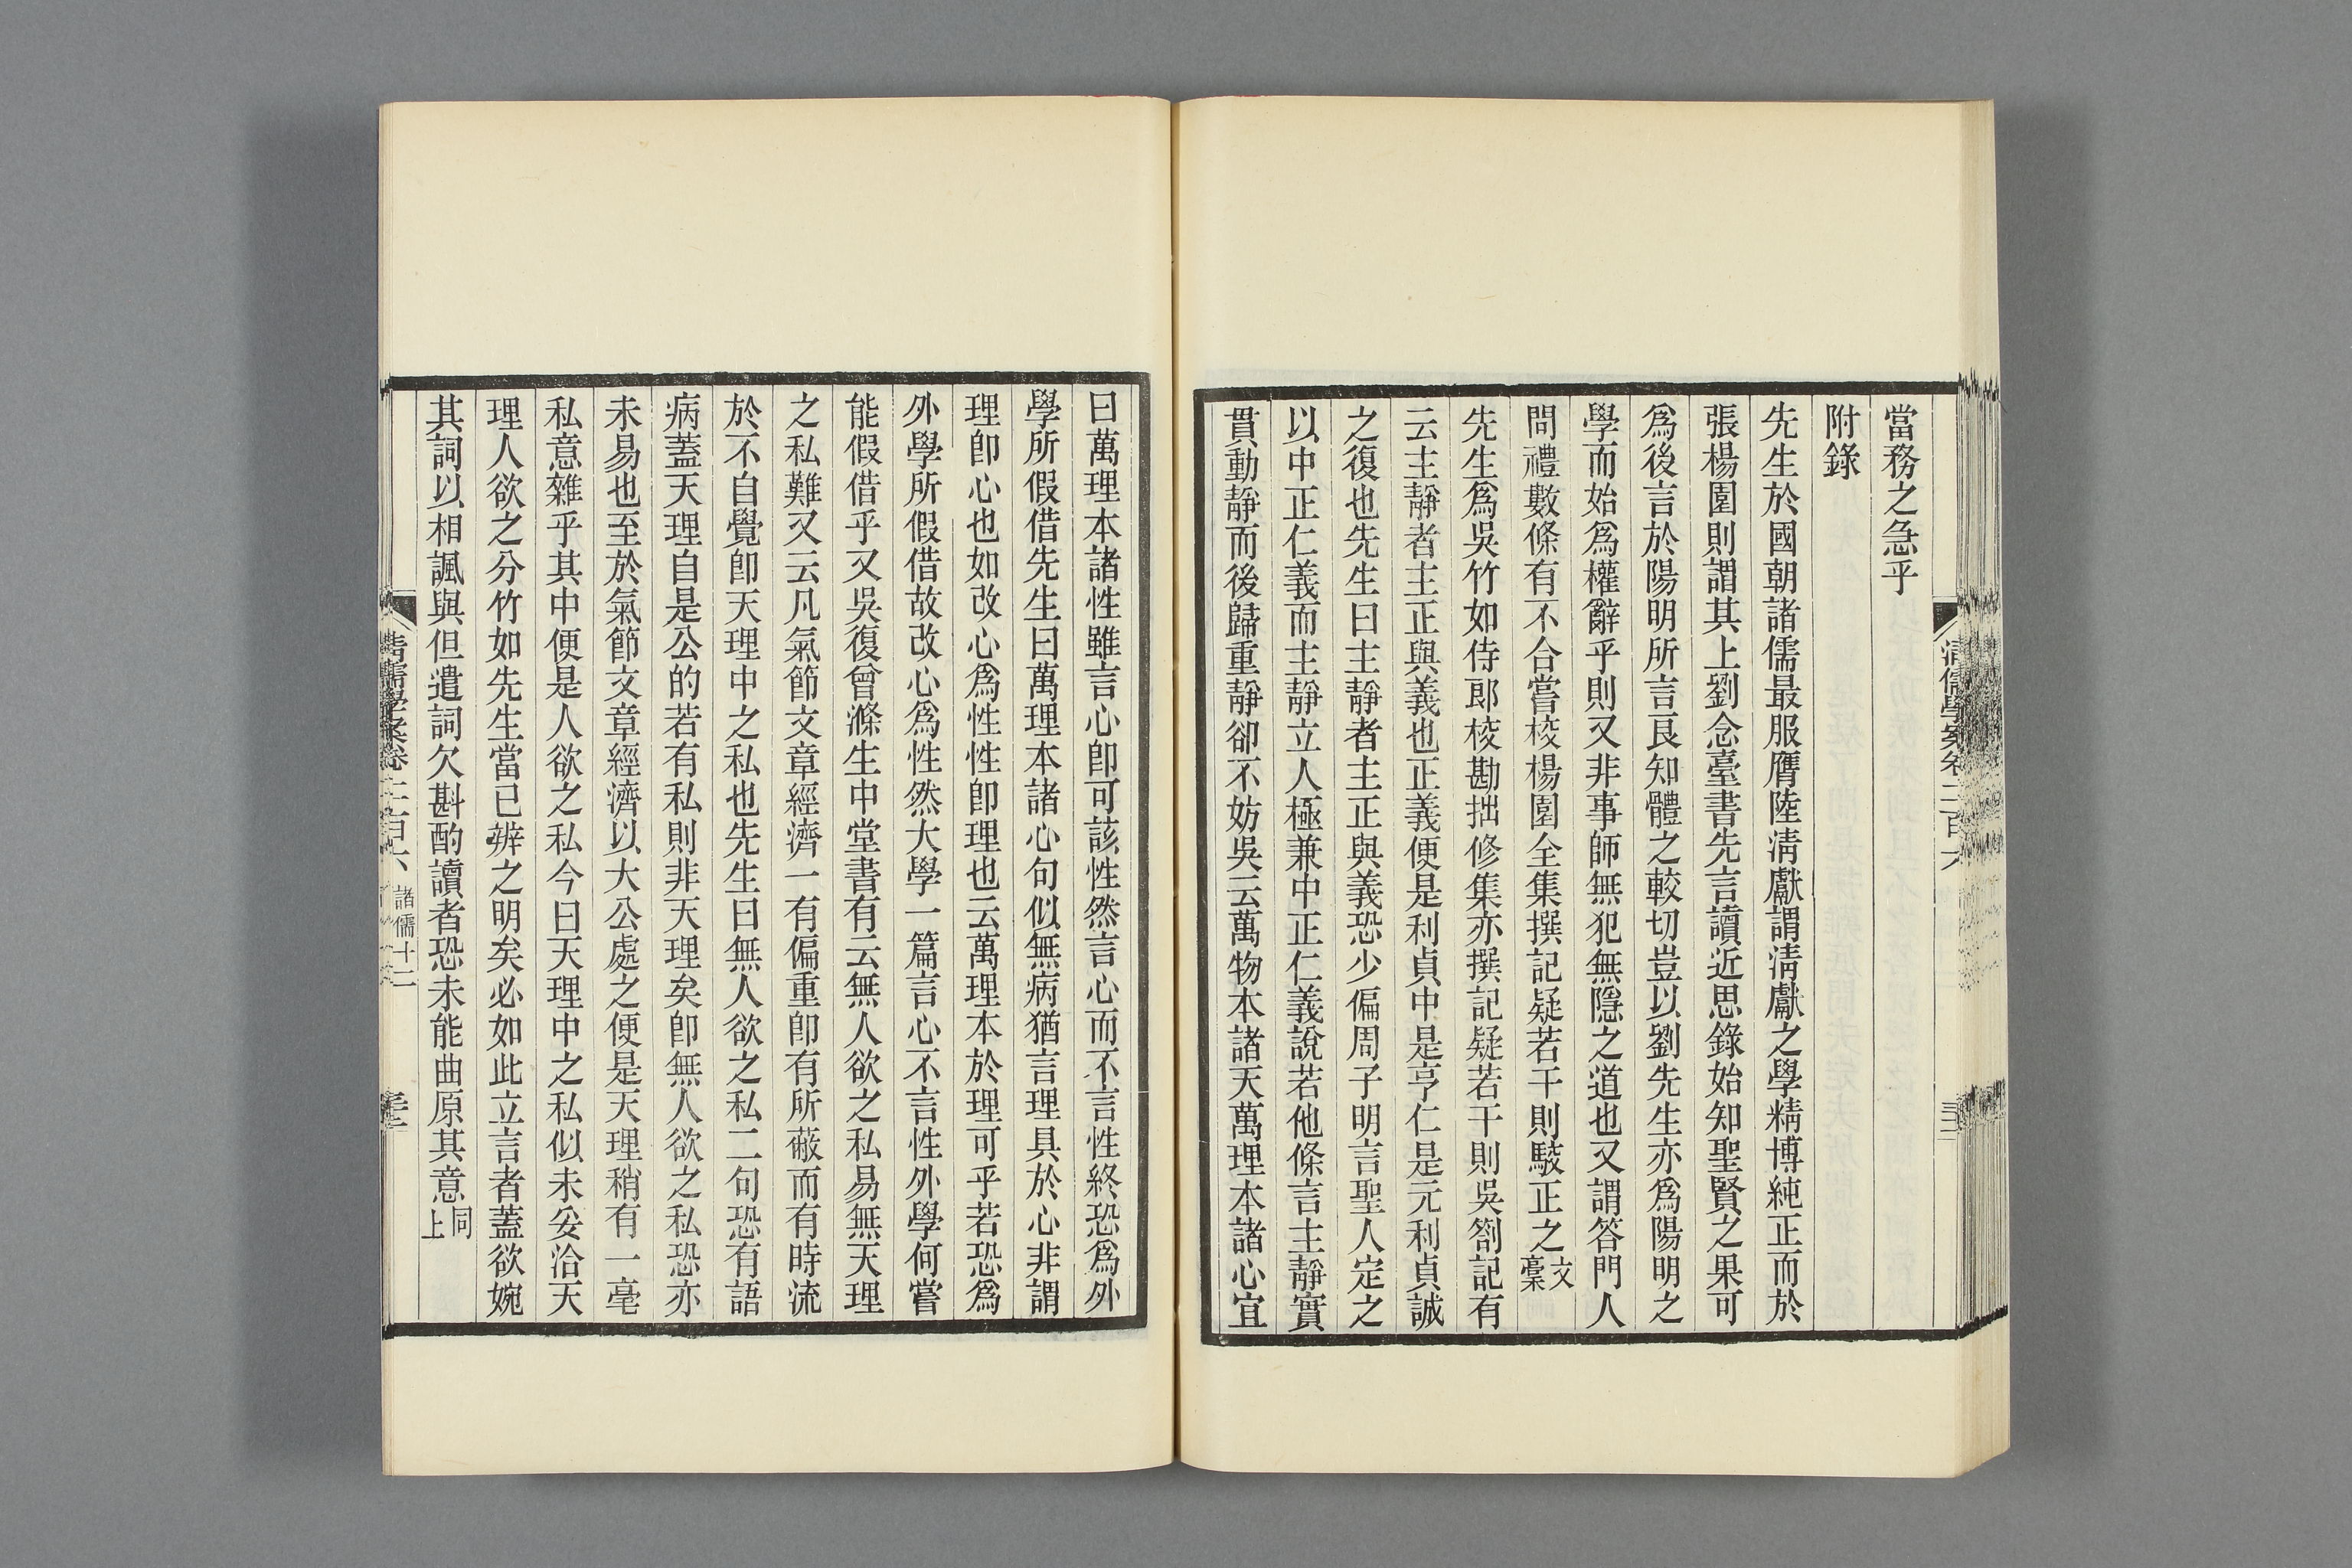 當務之急乎
附錄
先生於國朝諸儒最服膺陸清獻謂清獻之學精博純正而於
張楊園則謂其上劉念臺書先言讀近思錄始知聖賢之果可
爲後言於陽明所言良知體之較切豈以劉先生亦爲陽明之
學而始爲權辭乎則又非事師無犯無隱之道也又謂答門人
問禮數條有不合嘗校楊園全集撰記疑若干則駁正之文稾
先生爲吳竹如侍郎校勘拙修集亦撰記疑若干則吳劄記有
云主靜者主正與義也正義便是利貞中是亨仁是元利貞誠
之復也先生曰主靜者主正與義恐少偏周子明言聖人定之
以中正仁義而主靜立人極兼中正仁義說若他條言主靜實
貫動靜而後歸重靜卻不妨吳云萬物本諸天萬理本諸心宜
曰萬理本諸性雖言心卽可該性然言心而不言性終恐爲外
學所假借先生曰萬理本諸心句似無病猶言理具於心非謂
理卽心也如改心爲性性卽理也云萬理本於理可乎若恐爲
外學所假借故改心爲性然大學一篇言心不言性外學何嘗
能假借乎又吳復曾滌生中堂書有云無人欲之私易無天理
之私難又云凡氣節文章經濟一有偏重卽有所蔽而有時流
於不自覺卽天理中之私也先生曰無人欲之私二句恐有語
病蓋天理自是公的若有私則非天理矣卽無人欲之私恐亦
未易也至於氣節文章經濟以大公處之便是天理稍有一毫
私意雜乎其中便是人欲之私今曰天理中之私似未妥洽天
理人欲之分竹如先生當已辨之明矣必如此立言者蓋欲婉
其詞以相諷與但遣詞欠斟酌讀者恐未能曲原其意同上
清儒學案卷二百六 諸儒十二